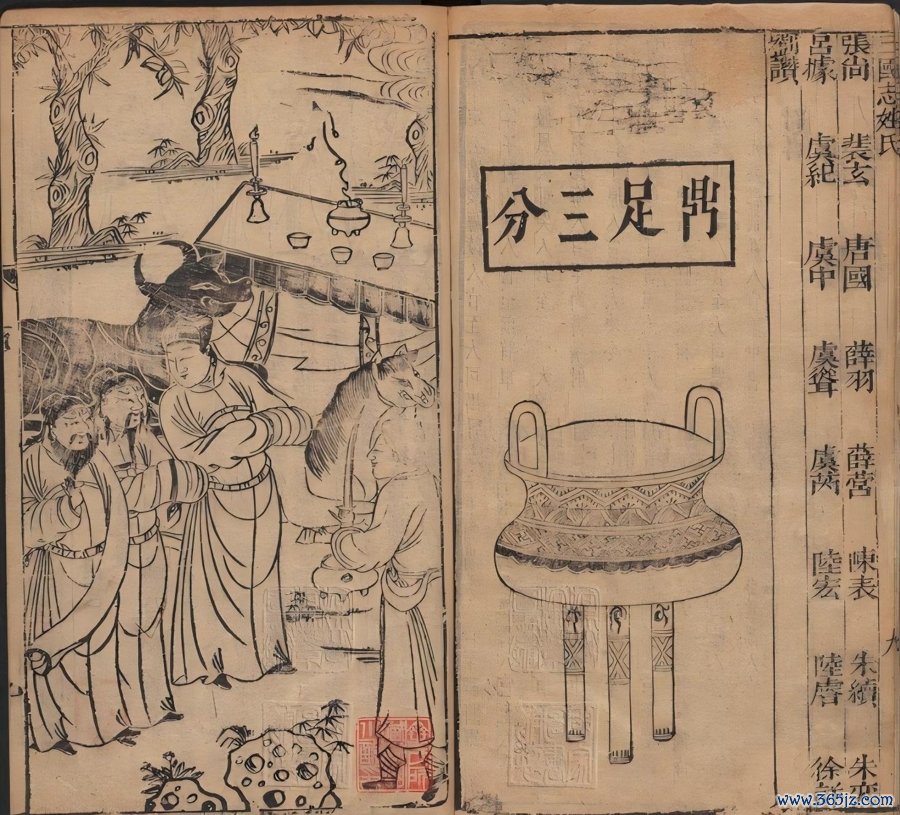 三國志姓氏 九
張尚 裴玄 唐國 薛羽 薛營 陳表 朱續 朱
呂據 虞紀 虞中 虞聳 虞 陸宏 陸 徐
劉讚
鼎足三分
www.365jz.com